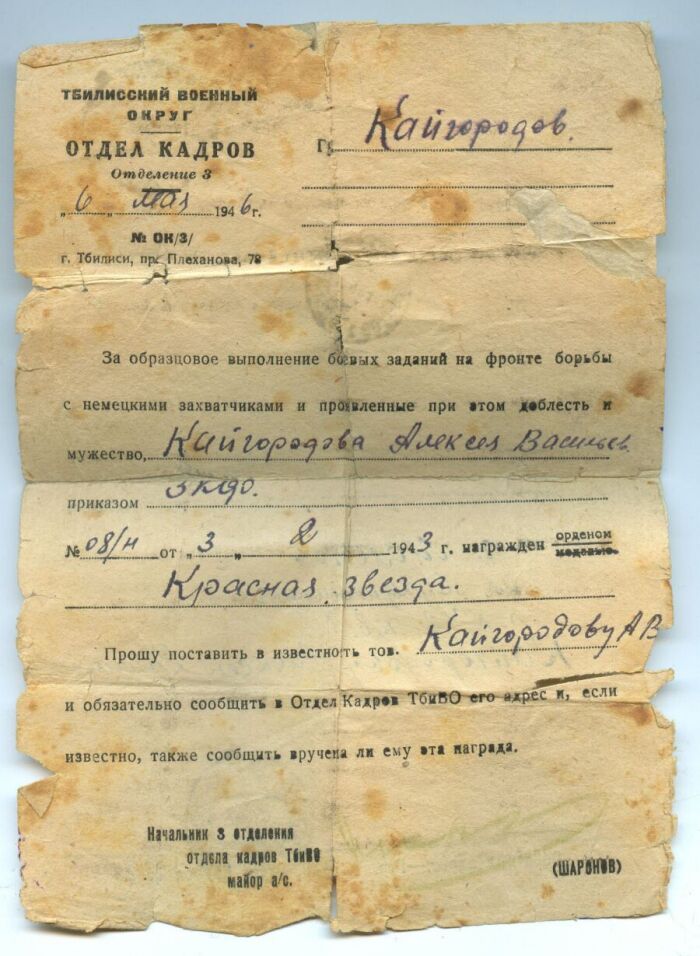 ТБИЛИССКИЙ ВОЕННЫЙ
ОКРУГ
ОТДЕЛ КАДРОВ
Отделение 3
„6„ мая 1946г.
№ ОК/3/
г. Тбилиси, пр. Плеханова, 78
Гр. Кайгородов.
За образцовое выполнение боевых заданий на фронте борьбы
с немецкими захватчиками и проявленные при этом доблесть и
мужество, Кайгородова Алексея Васильев.
приказом
№ 08/н от „3„ 2 1943 г. награжден орденом
медалью.
Красная звезда.
Прошу поставить в известность тов. Кайгородову А В
и обязательно сообщить в Отдел Кадров ТбиВО его адрес и, если
известно, также сообщить вручена ли ему эта награда.
Начальник 3 отделения
отдела кадров ТбиВО
майор а/с.
(ШАРОНОВ)